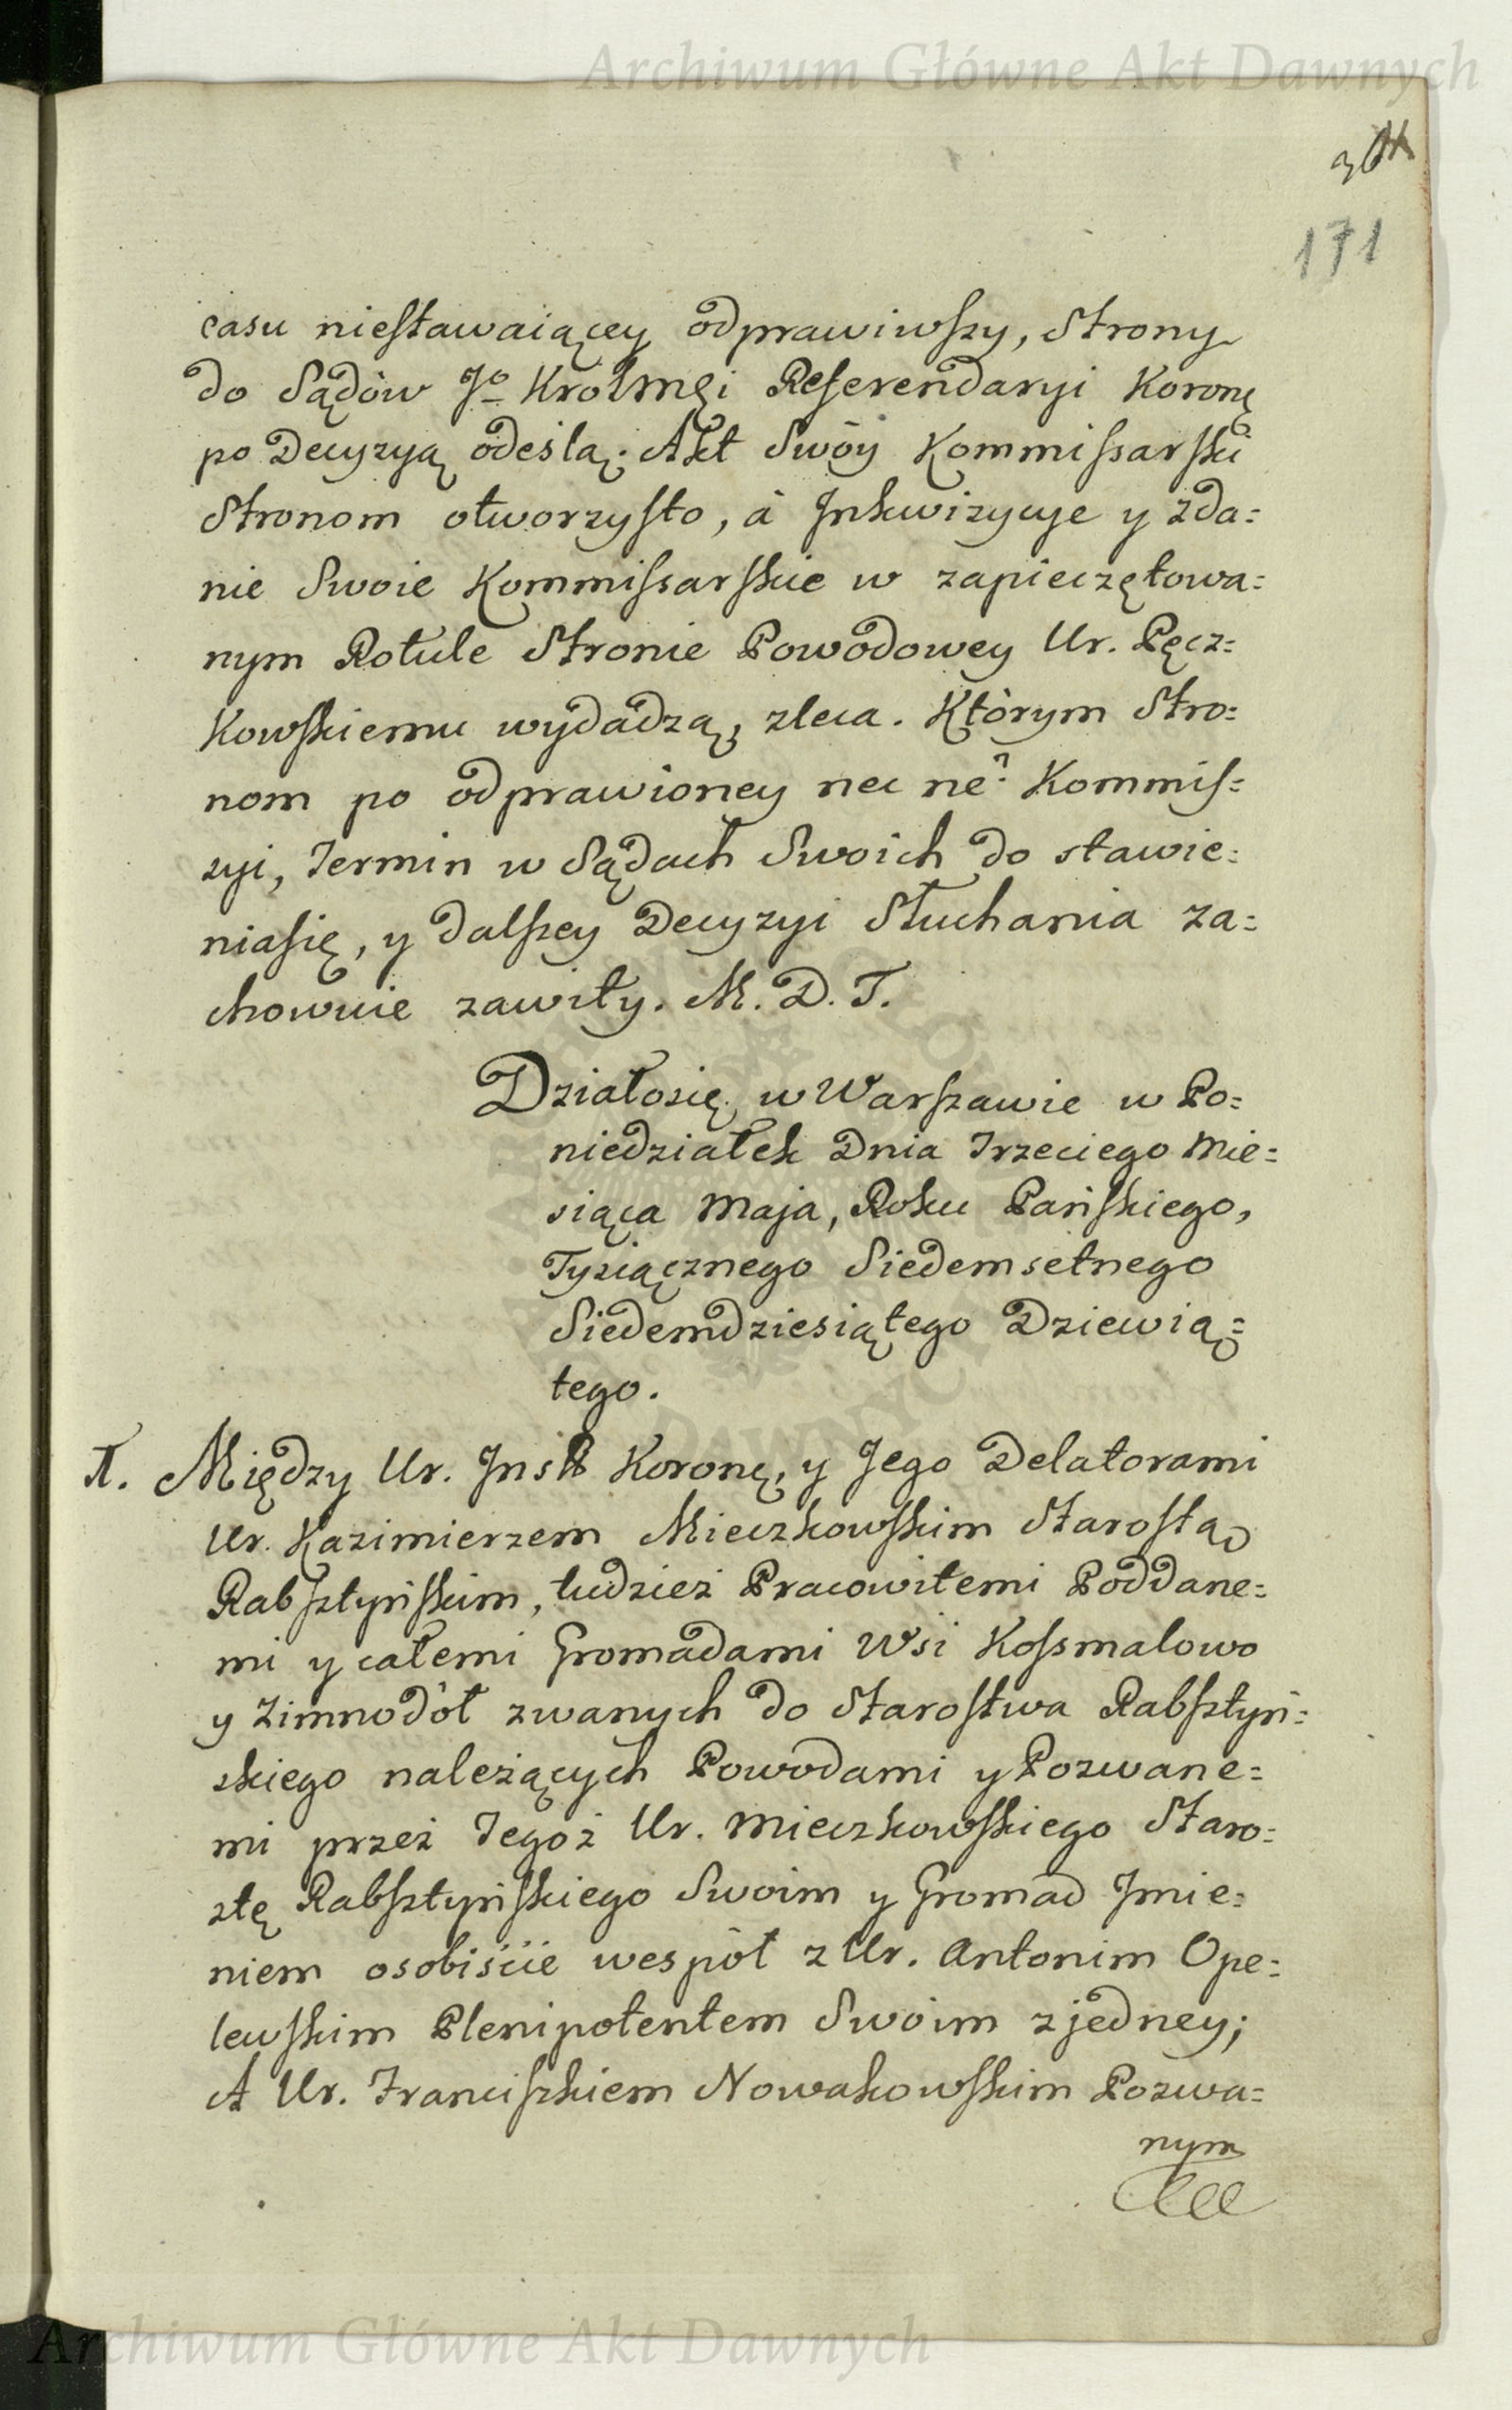 Archiwum Główne Akt Dawnych
171
casu niestawaiącey odprawiwszy, Strony
do Sądów Jo KrólMçi Referendaryi Koronę
po Decyzyą odeślą. Akt Swóy Kommissarski
Stronom otworzysto, á Inkwizycye y Zda=
nie Swoie Kommissarskie w zapieczętowa=
nym Rotule Stronie Powodowey Ur. Pęcz=
kowskiemu wydádzą, zleca. Którym Stro=
nom po odprawioney nec ne Kommis=
syi, Termin w Sądach Swoich do stawie=
niasię, y dalszey Decyzyi Słuchania za=
chowuie zawiły. M. D. T.
Działosię w Warszawie w Po=
niedziałek Dnia Trzeciego Mie=
siąca Maja, Roku Pańskiego,
Tysiącznego Siedemsetnego
Siedemdziesiątego Dziewią=
tego.
Między Ur. Inst Koronę, y Jego Delatorami
Ur. Kazimierzem Mieczkowskim Starostą
Rabsztyńskim, tudzież Pracowitemi Poddane=
mi y całemi Gromadami Wsi Kossmalowo
y Zimnodół zwanych do Starostwa Rabsztyń=
skiego należących Powodami y Pozwane=
mi przez Tegoż Ur. Mieczkowskiego Staro=
stę Rabsztyńskiego Swoim y Gromad Imie=
niem osobiście wespół z Ur. Antonim Ope=
lewskim Plenipotentem Swoim z jedney;
A Ur. Franciszkiem Nowakowskim Pozwa=
nym
Archiwum Główne Akt Dawnych